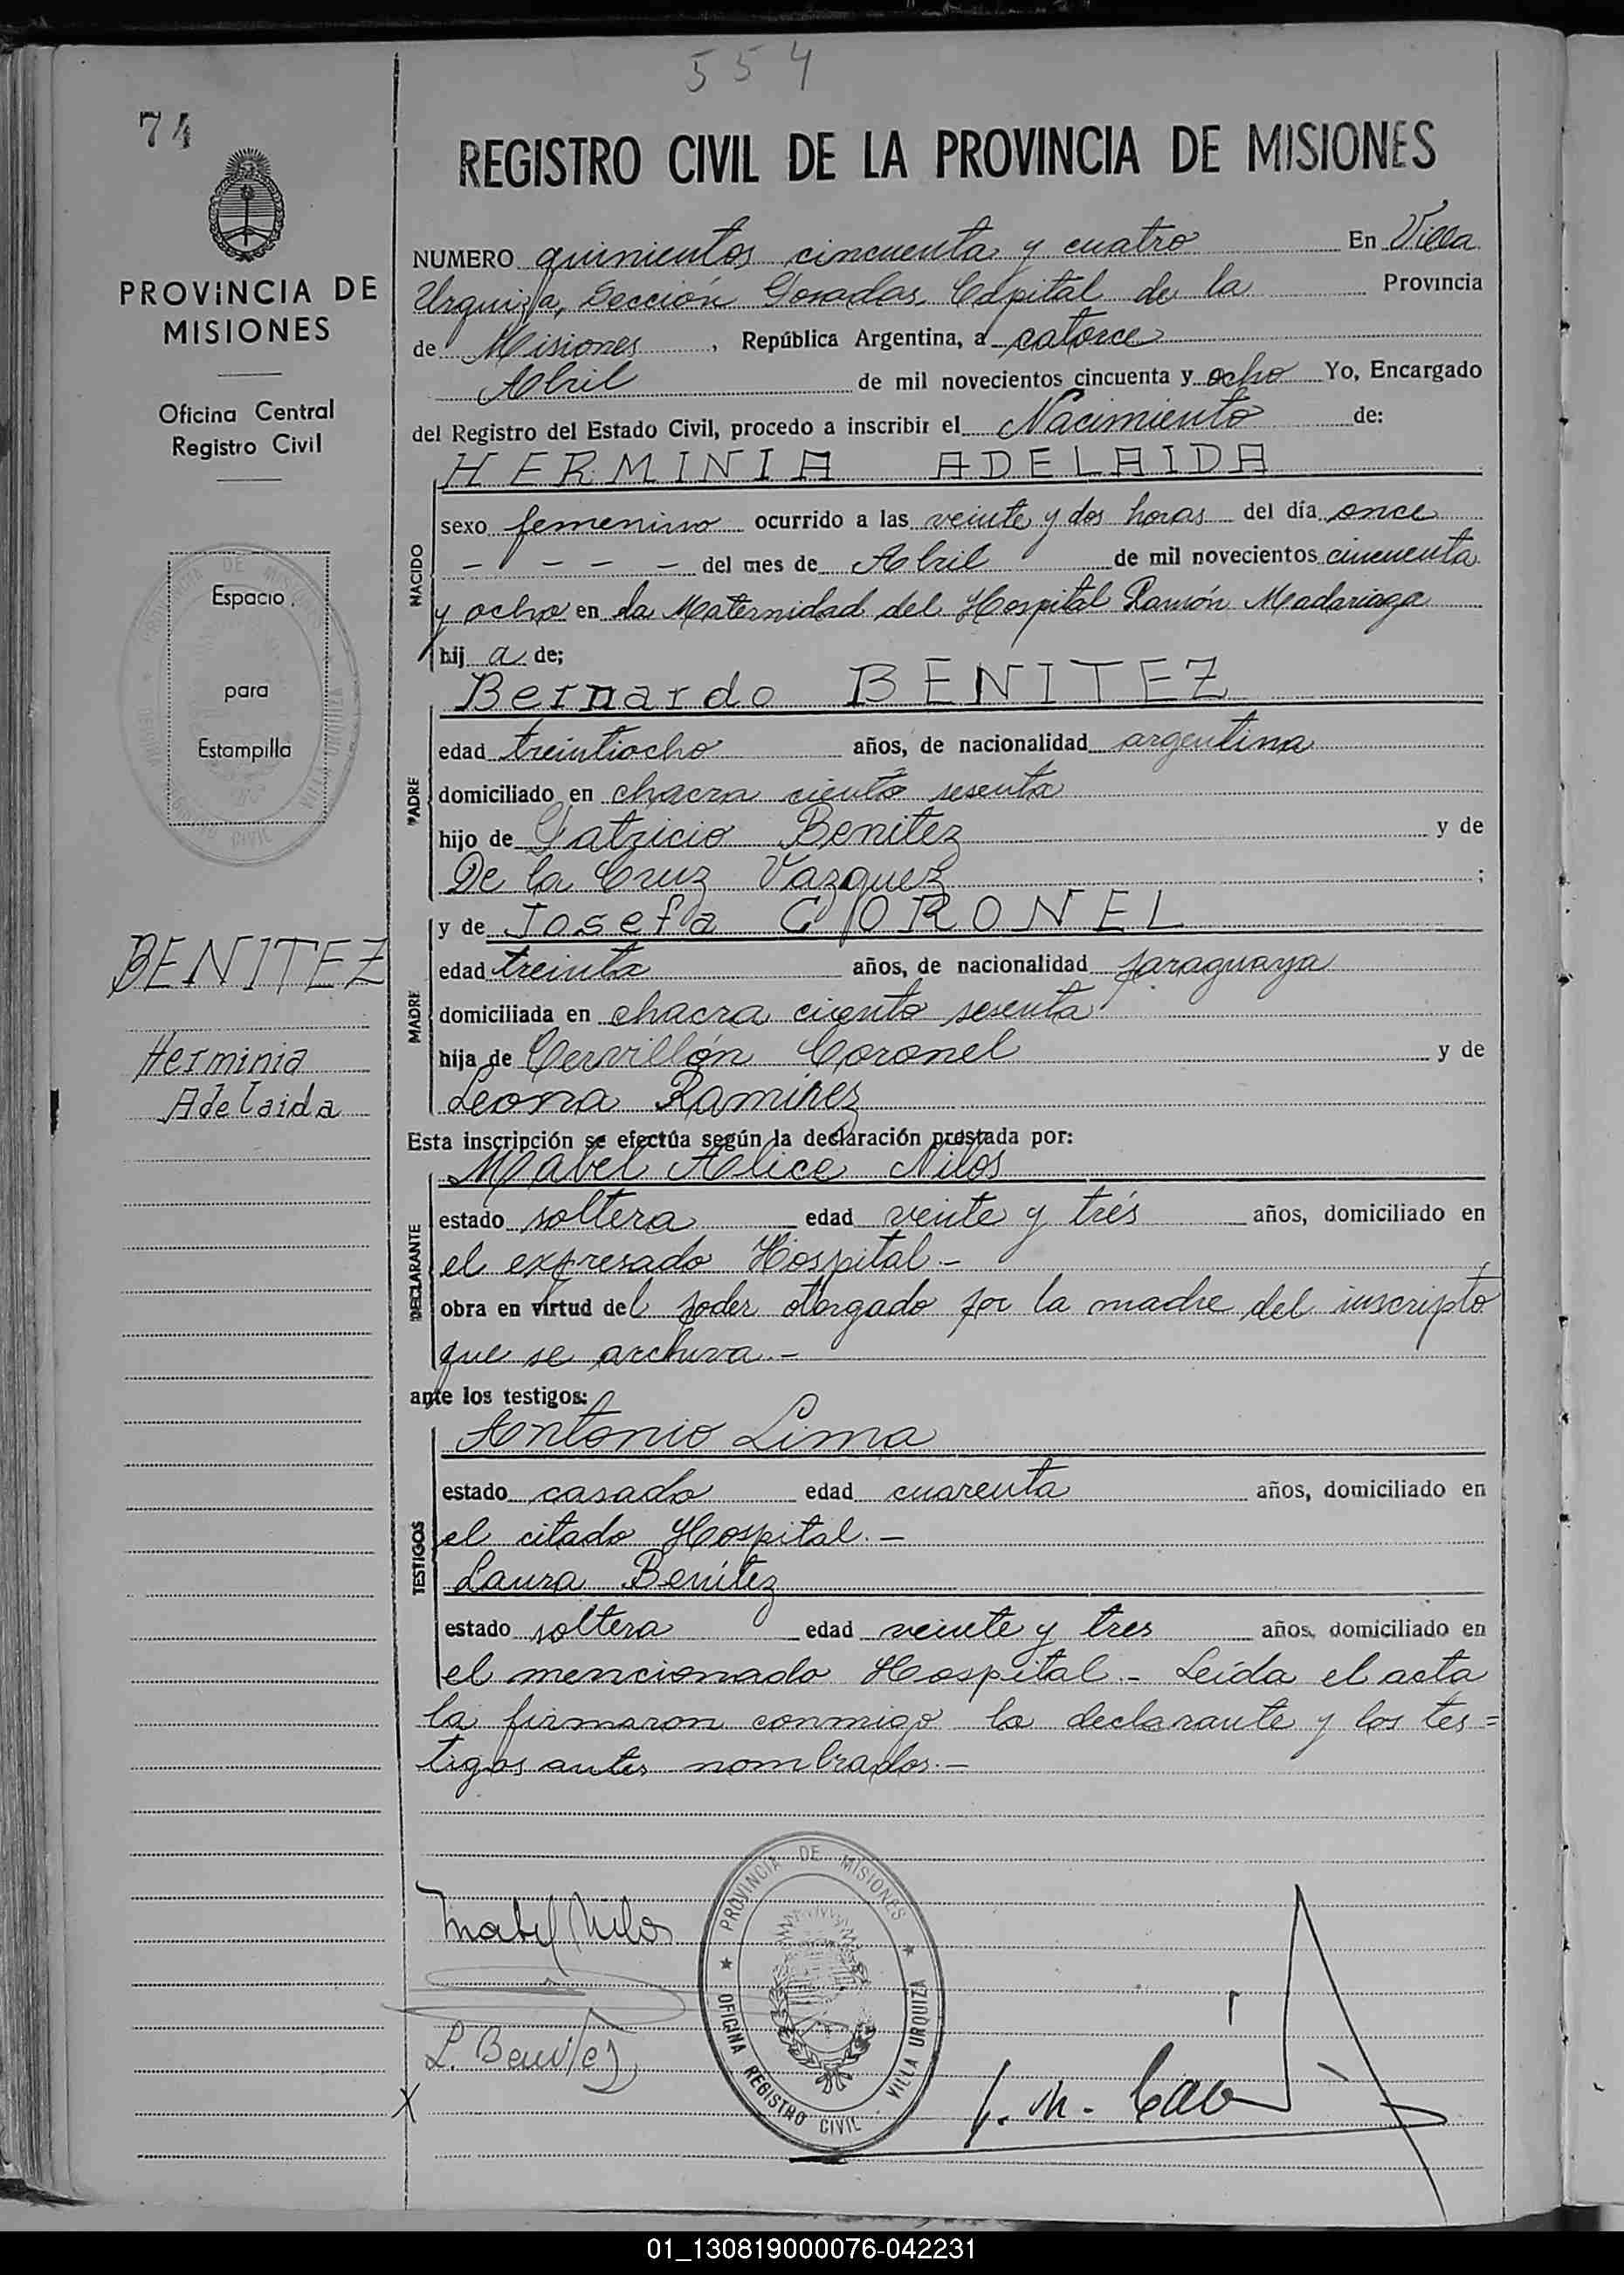 554
74
REGISTRO CIVIL DE LA PROVINCIA DE MISIONES
PROVINCIA DE
MISIONES
Oficina Central
Registro Civil
Espacio
para
Estampilla
BENITEZ
Herminia
Adelaida
NUMERO quinientos cincuenta y cuatro En Villa
Urquiza, Sección Posadas Capital de la Provincia
de Misiones, República Argentina, a catorce
Abril de mil novecientos cincuenta y ocho Yo, Encargado
del Registro del Estado Civil, procedo a inscribir el Nacimiento de:
HERMINIA ADELAIDA
NACIDO
sexo femenino ocurrido a las veinte y dos horas del día once
- - - - del mes de Abril de mil novecientos cincuenta
y ocho en la Maternidad del Hospital Ramón Madariaga
hij a de;
Bernardo BENITEZ
PADRE
edad treintiocho años, de nacionalidad argentina
domiciliado en chacra ciento sesenta
hijo de Patricio Benitez y de
De la Cruz Vazquez ;
y de Josefa CORONEL
MADRE
edad treinta años, de nacionalidad paraguaya
domiciliada en chacra ciento sesenta
hija de Cervillón Coronel y de
Leona Ramirez
Esta inscripción se efectúa según la declaración prestada por:
Mabel Alice Nilos
DECLARANTE
estado soltera edad veinte y trés años, domiciliado en
el expresado Hospital.-
obra en virtud del poder otorgado por la madre del inscripto
que se archiva.-
ante los testigos:
Antonio Lima
TESTIGOS
estado casado edad cuarenta años, domiciliado en
el citado Hospital.-
Laura Benítez
estado soltera edad veinte y tres años, domiciliado en
el mencionado Hospital.- Leída el acta
la firmaron conmigo la declarante y los tes=
tigos antes nombrados.-
Mabel Nilos
L. Benitez
PROVINCIA DE MISIONES
OFICINA REGISTRO CIVIL VILLA URQUIZA
01_130819000076-042231